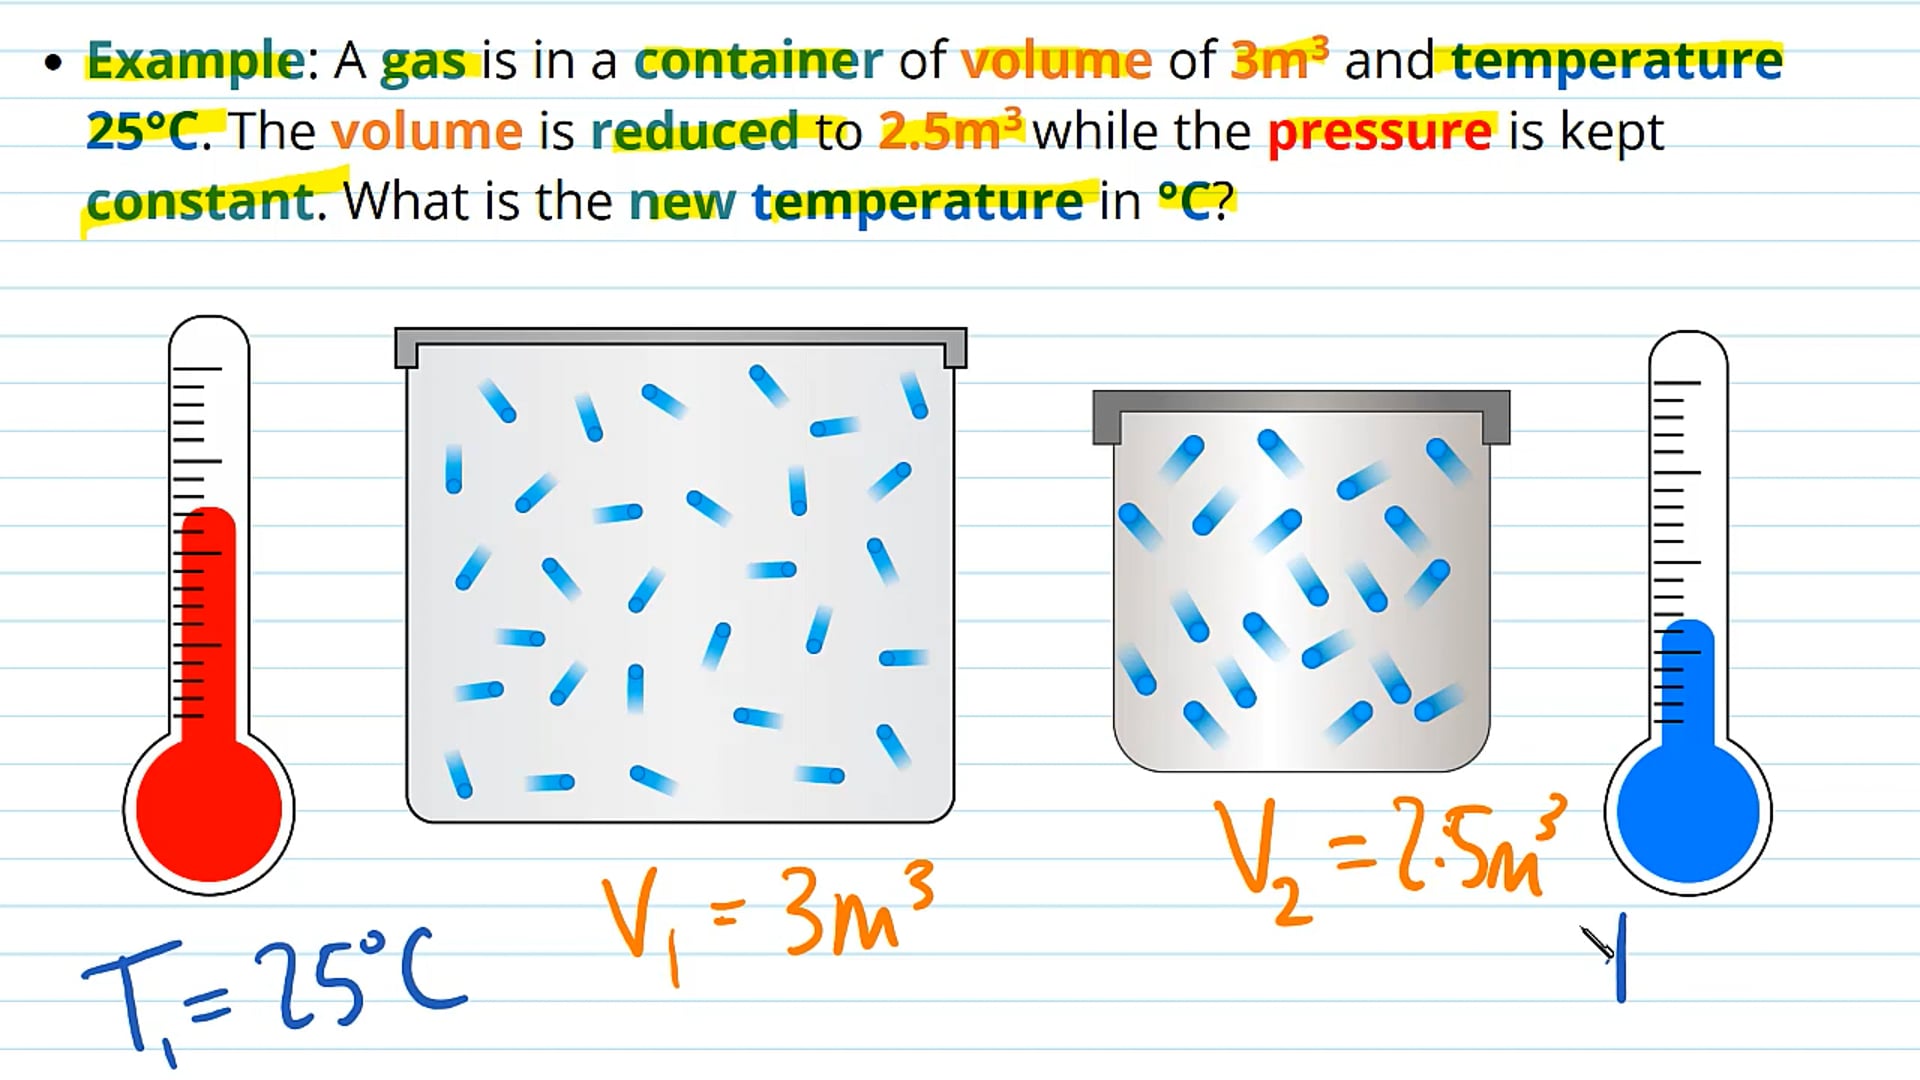 • Example: A gas is in a container of volume of 3m³ and temperature
25°C. The volume is reduced to 2.5m³ while the pressure is kept
constant. What is the new temperature in °C?
V₂ = 2.5m³
V₁ = 3m³
T₁ = 25°C